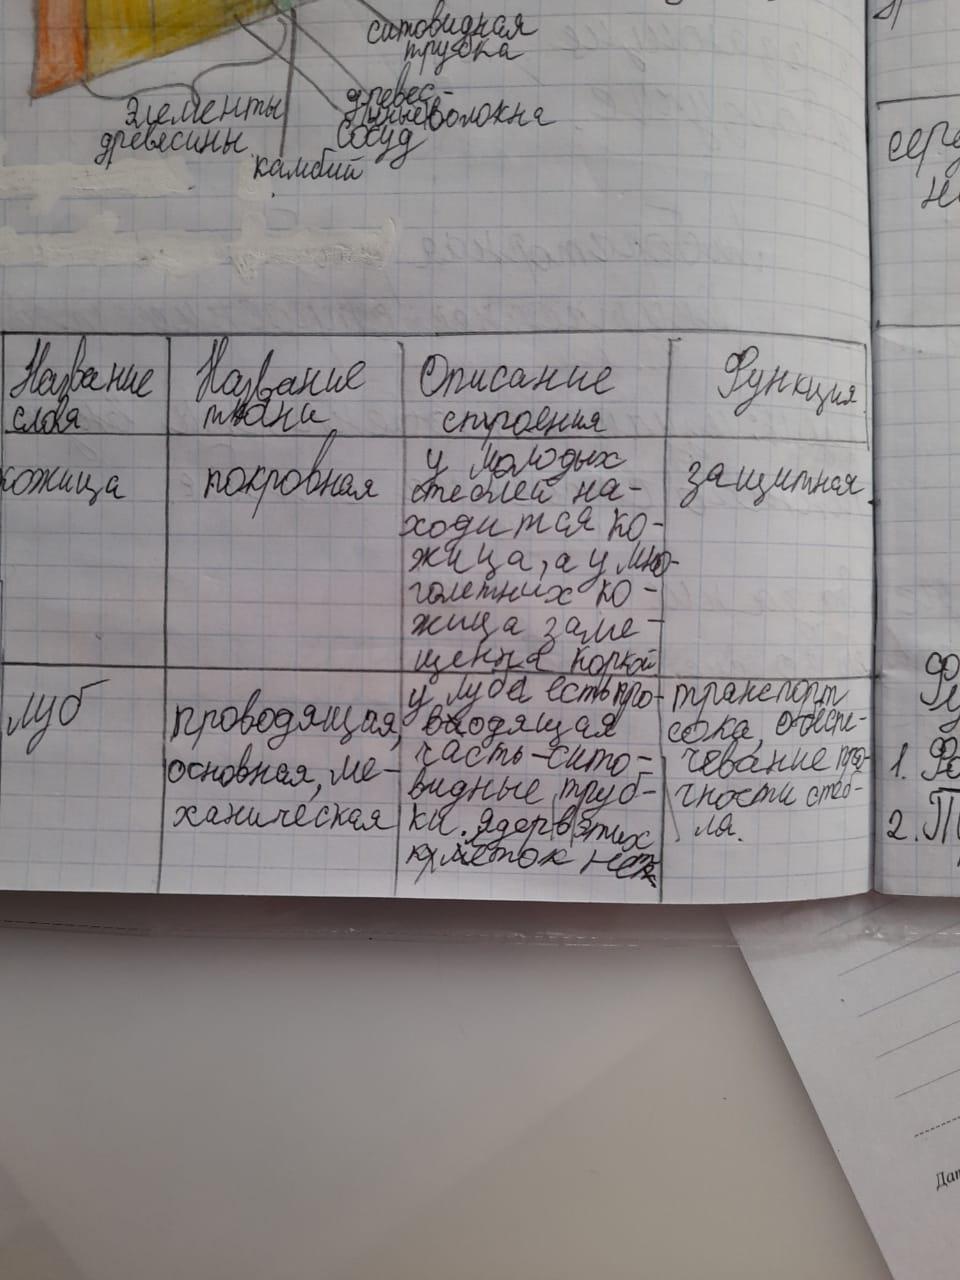 ситовидная
трубка
древес-
элементы
ные волокна
древесины
сосуд
камбий
Название
слоя
Название
ткани
Описание
строения
Функция
кожица
покровная
у молодых
стеблей на-
ходится ко-
жица, а у мно-
голетних ко-
жица заме-
щена коркой
защитная
луб
проводящая,
основная, ме-
ханическая
у луба есть про-
водящая
часть-сито-
видные труб-
ки. Ядер в этих
клеток нет
транспорт
сока, обеспе-
чевание про-
чности стеб-
ля.
1.
2. П
Дат